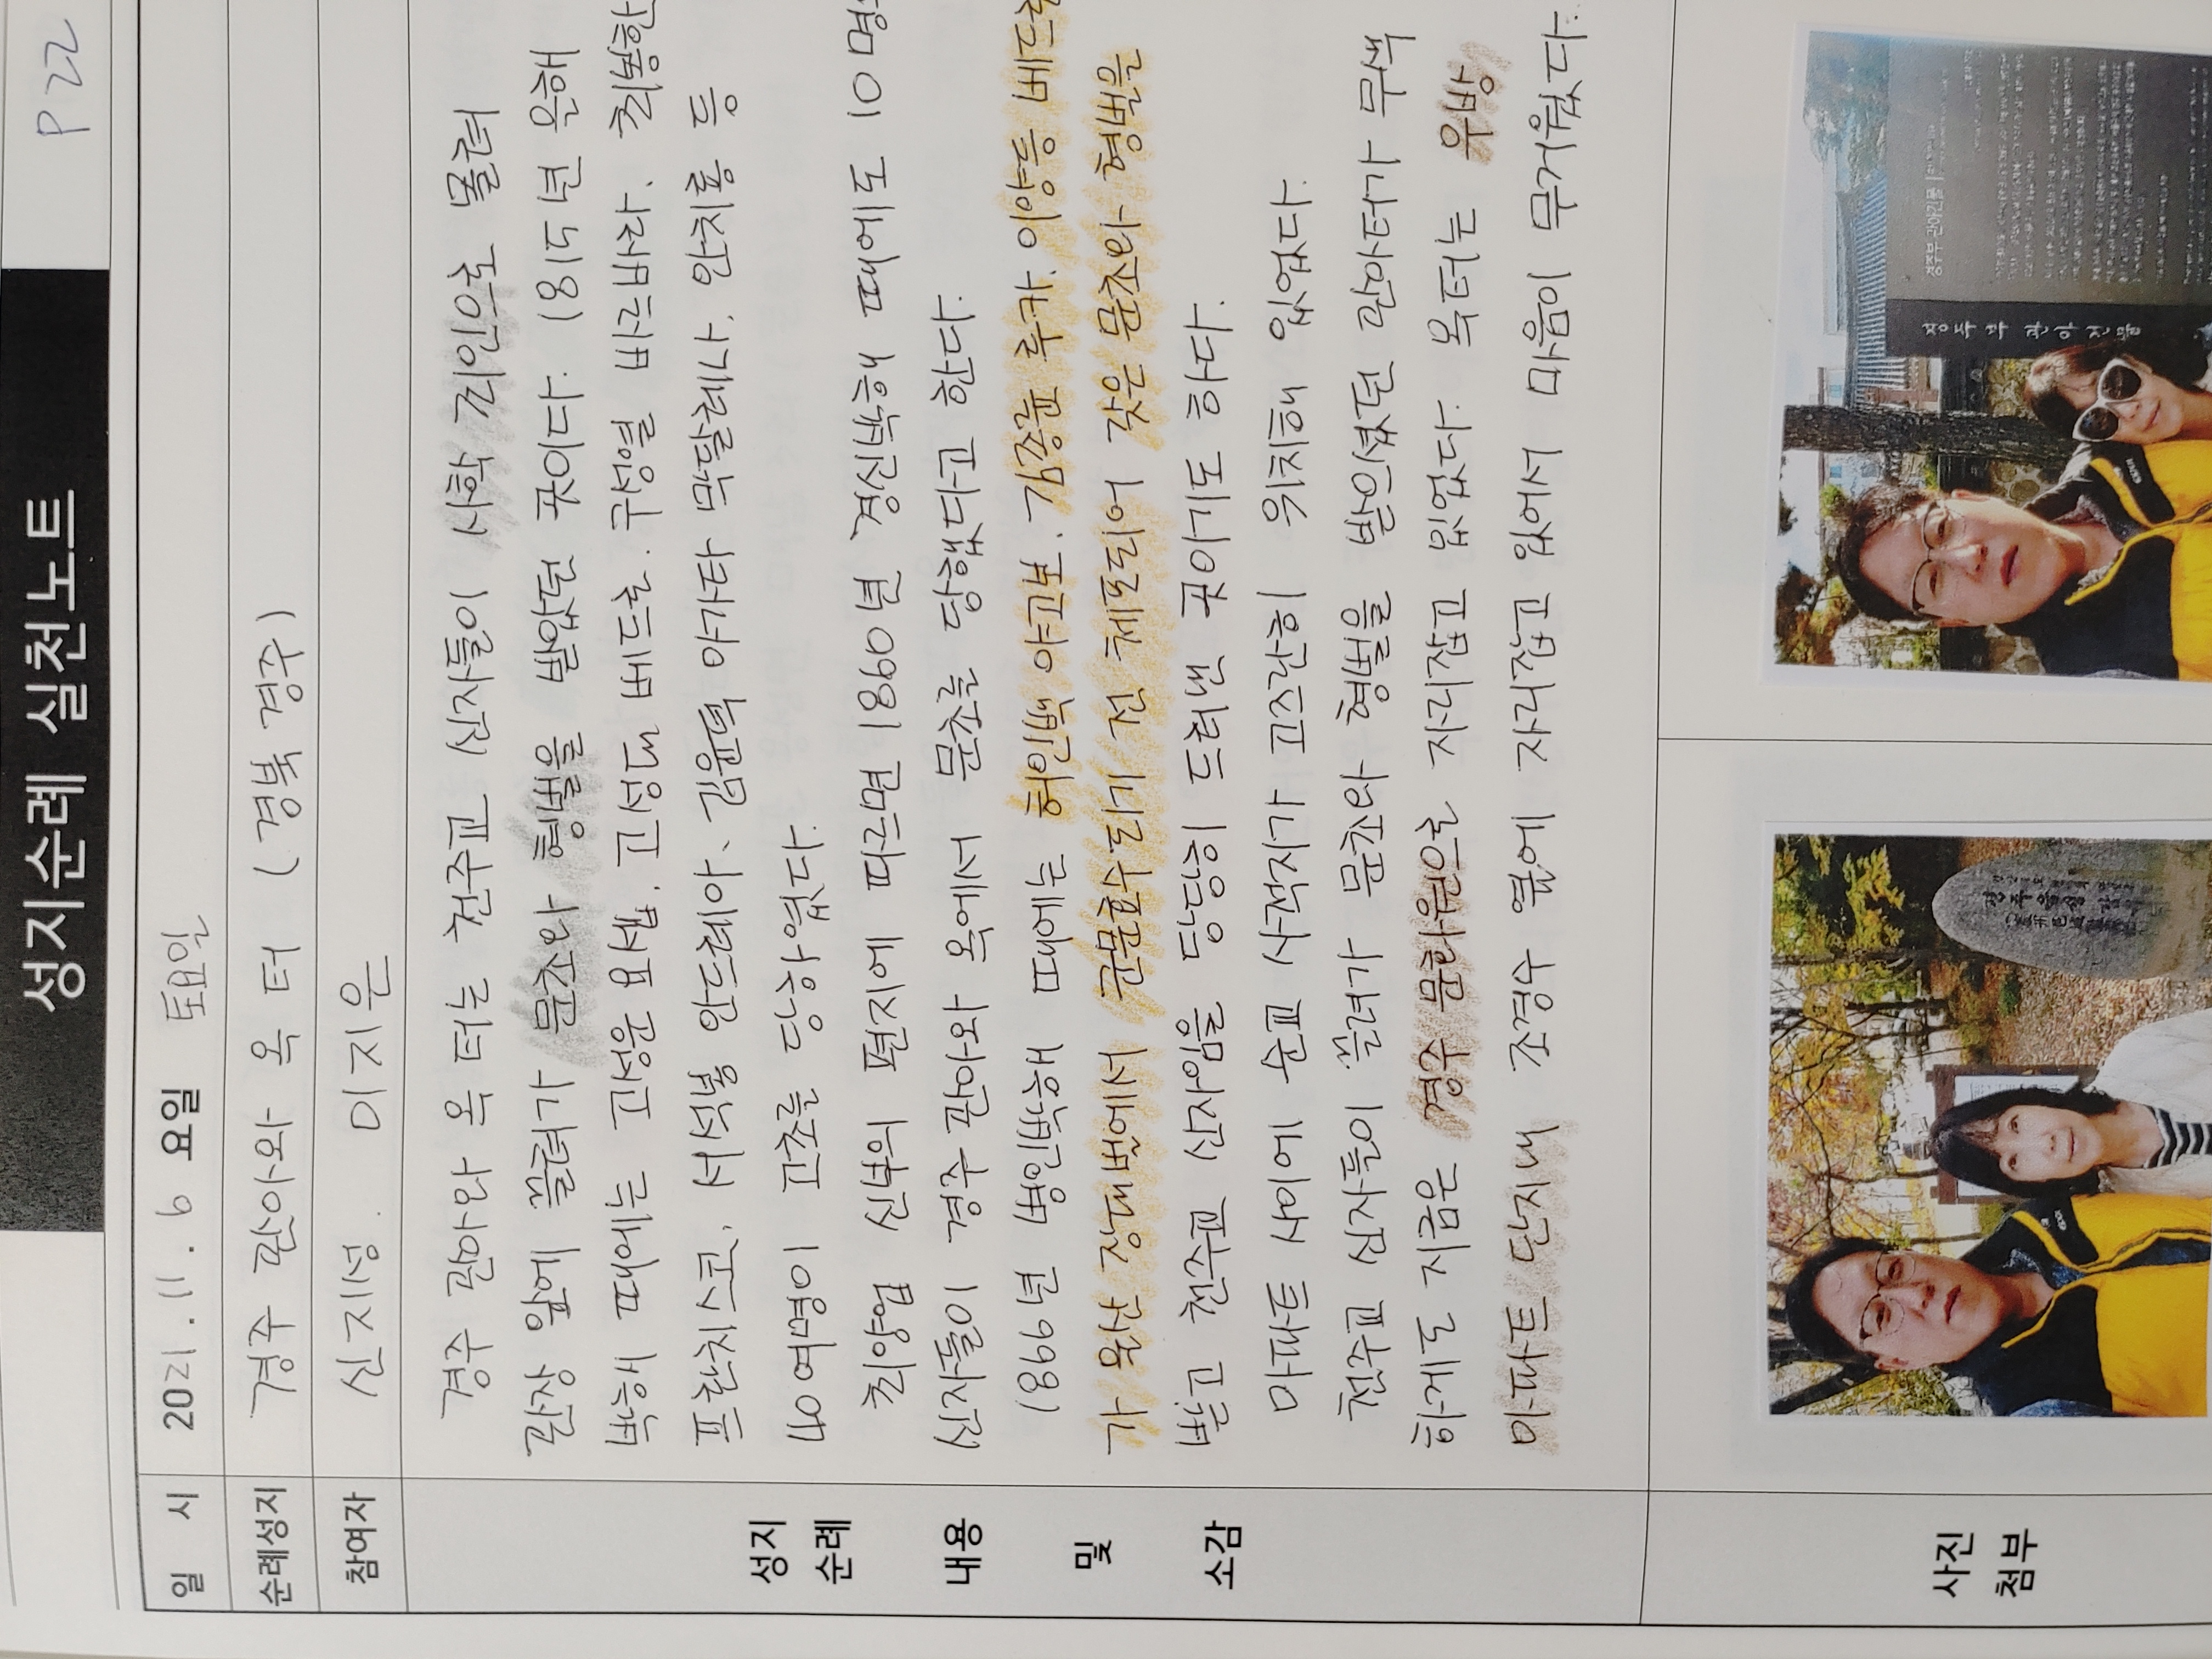 성지순례 실천노트
P 22
일 시 2021. 11. 6 요일 토요일
순례성지 경주 관아와 옥 터 (경북 경주)
참여자 신지성. 이지은
성지 순례 내용 및 소감
경주 관아와 옥 터는 천주교 신자들이 사학 죄인으로 몰려
관장 앞에 끌려가 문초와 형벌을 받았던 곳이다. 1815년 을해
박해 때에는 고성운 요셉. 고성대 베드로. 구성열 바르바라. 최봉한
프란치스코. 서석봉 안드레아. 김윤덕 아가타 막달레나. 안치룡 등
40여명이 고초를 당하였다.
최양업 신부의 편지에 따르면 1860년 경신박해 때에도 10명
신자들이 경주 관아와 옥에서 문초를 당했다고 한다.
1866년 병인박해 때에는 허인백 야고보. 김종륜 루카. 이양등 베드로
가 울산 장대벌에서 군문효수되기 전 체포되어 갖은 문초와 형벌을
받고 천주교 신자임을 당당히 드러낸 곳이기도 하다.
아파트 사이에 순교 사적지가 고즈란히 위치해 있었다.
천주교 신자들이 끌려가 문초와 형벌을 받으셨던 관아터가 무색
하게도 지금은 경주 문화원으로 자리잡고 있었다. 옥터는 우방
아파트 단지내 조경수 옆에 자리잡고 있어서 마음이 무거웠다.
사진 첨부
경주읍성
경주부 관아건물
경주부 관아건물